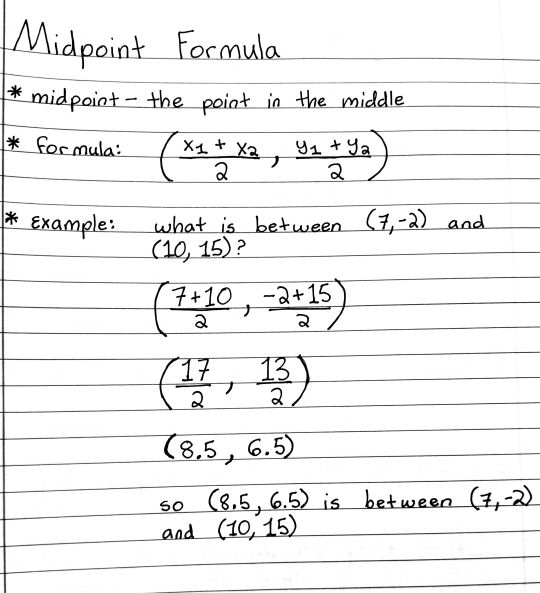 Midpoint Formula
* midpoint - the point in the middle
* formula: (x1 + x2 / 2 , y1 + y2 / 2)
* Example: what is between (7,-2) and
(10, 15)?
(7+10 / 2 , -2+15 / 2)
(17 / 2 , 13 / 2)
(8.5, 6.5)
so (8.5, 6.5) is between (7,-2)
and (10, 15)